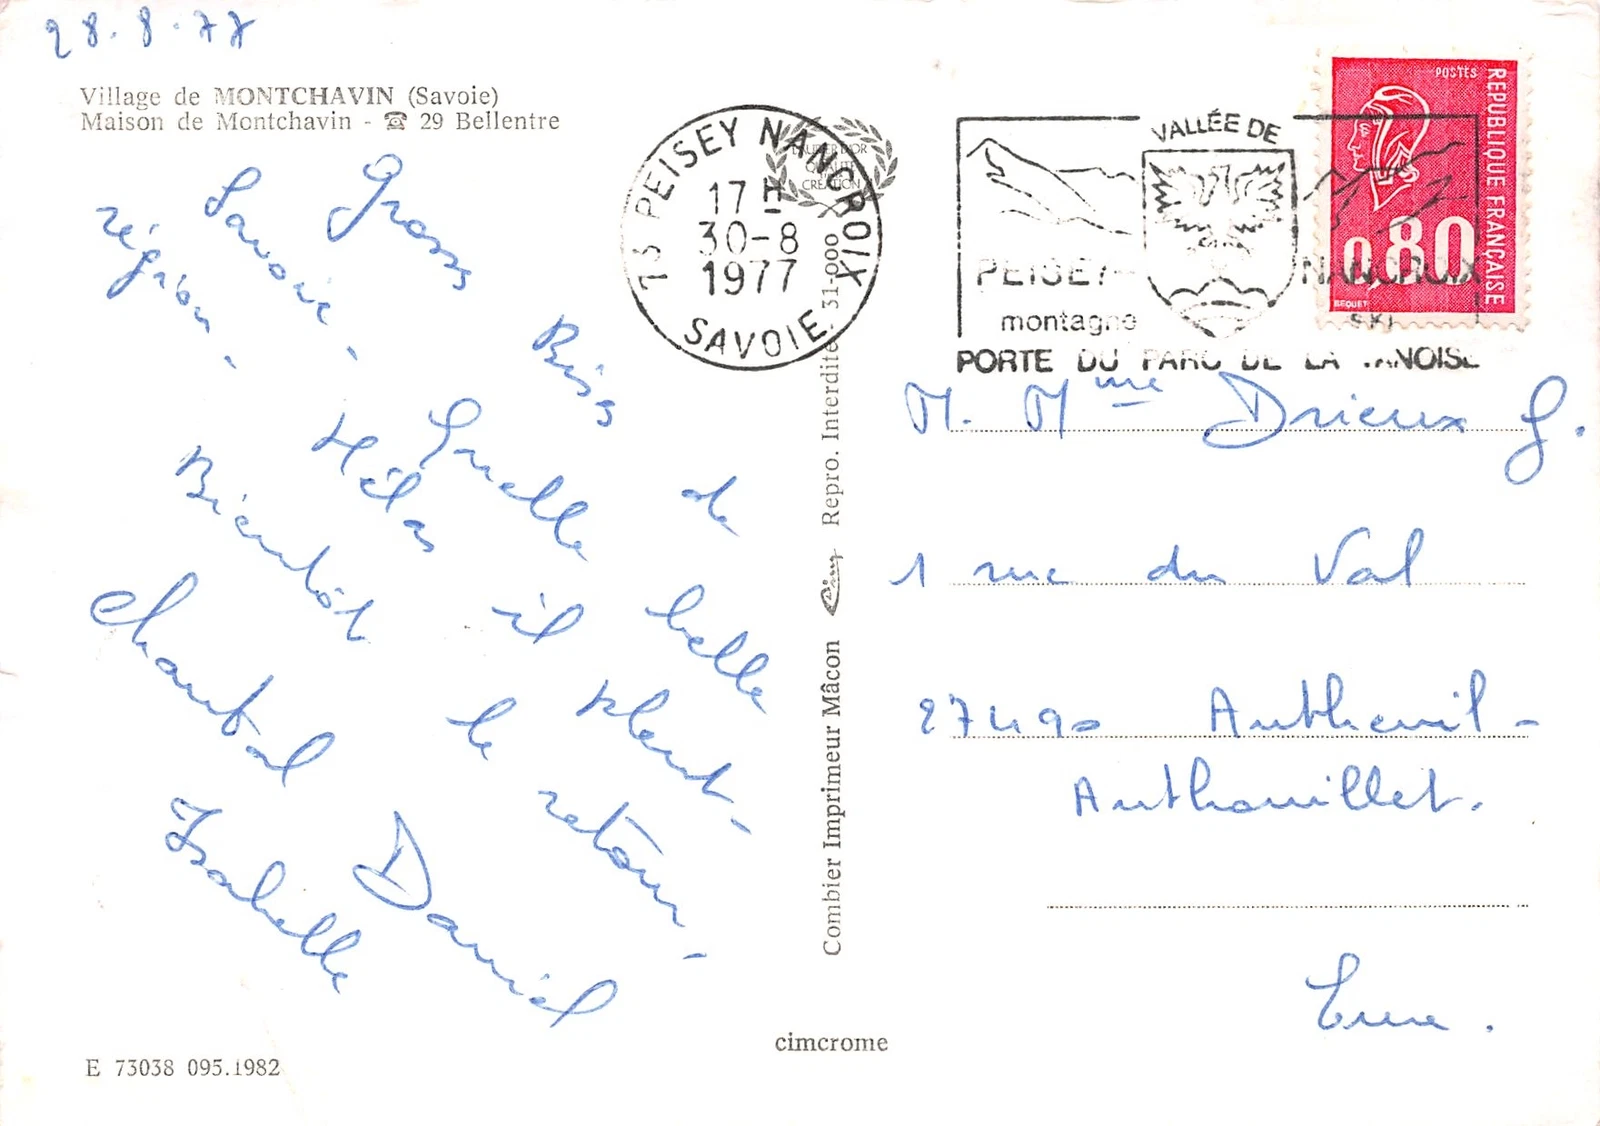 28.8.77
Village de MONTCHAVIN (Savoie)
Maison de Montchavin - ☎ 29 Bellentre
Gross Biss de
Savoie. Quelle belle
région. Hélas il pleut.
Bientôt le retour.
Chantal Daniel
Isabelle
E 73038 095.1982
cimcrome
Combier Imprimeur Mâcon
Repro. Interdite 31-000
LAURIER D'OR
QUALITÉ
CRÉATION
73 PEISEY NANCROIX
17 H
30-8
1977
SAVOIE
VALLÉE DE
PEISEY-NANCROIX
montagne SKI
PORTE DU PARC DE LA VANOISE
POSTES
REPUBLIQUE FRANÇAISE
0,80
BEQUET
M. Mme Drieux G.
1 rue du Val
27490 Autheuil-
Authouillet.
Eure.